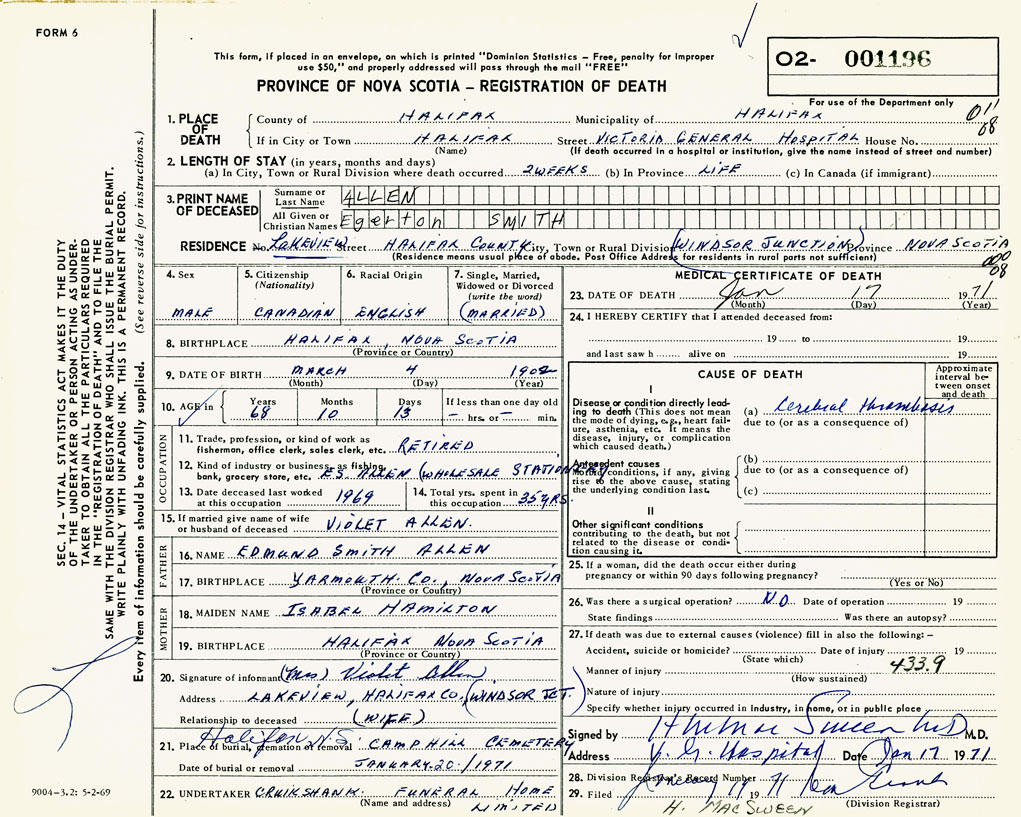 FORM 6
This form, if placed in an envelope, on which is printed "Dominion Statistics – Free, penalty for improper
use $50," and properly addressed will pass through the mail "FREE"
PROVINCE OF NOVA SCOTIA – REGISTRATION OF DEATH
O2- 001196
For use of the Department only
SEC. 14 – VITAL STATISTICS ACT MAKES IT THE DUTY
OF THE UNDERTAKER OR PERSON ACTING AS UNDER-
TAKER TO OBTAIN ALL THE PARTICULARS REQUIRED
IN THE "REGISTRATION OF DEATH" AND TO FILE THE
SAME WITH THE DIVISION REGISTRAR WHO SHALL ISSUE THE BURIAL PERMIT.
WRITE PLAINLY WITH UNFADING INK. THIS IS A PERMANENT RECORD.
Every item of information should be carefully supplied. (See reverse side for instructions.)
1. PLACE OF DEATH
County of HALIFAX Municipality of HALIFAX 01' 08
If in City or Town HALIFAX Street VICTORIA GENERAL HOSPITAL House No.
(Name) (If death occurred in a hospital or institution, give the name instead of street and number)
2. LENGTH OF STAY (in years, months and days)
(a) In City, Town or Rural Division where death occurred 2 WEEKS (b) In Province LIFE (c) In Canada (if immigrant)
3. PRINT NAME OF DECEASED
Surname or Last Name ALLEN
All Given or Christian Names Egerton SMITH
RESIDENCE No. LAKEVIEW Street HALIFAX COUNTY City, Town or Rural Division (WINDSOR JUNCTION) Province NOVA SCOTIA
(Residence means usual place of abode. Post Office Address for residents in rural parts not sufficient)
000 08
4. Sex
MALE
5. Citizenship
(Nationality)
CANADIAN
6. Racial Origin
ENGLISH
7. Single, Married,
Widowed or Divorced
(write the word)
(MARRIED)
8. BIRTHPLACE HALIFAX, NOVA SCOTIA
(Province or Country)
9. DATE OF BIRTH MARCH 4 1902
(Month) (Day) (Year)
10. AGE in Years Months Days If less than one day old
68 10 13 – hrs. or – min.
OCCUPATION
11. Trade, profession, or kind of work as
fisherman, office clerk, sales clerk, etc. RETIRED
12. Kind of industry or business, as fishing,
bank, grocery store, etc. E.S. ALLEN (WHOLESALE STATIONERY
13. Date deceased last worked
at this occupation 1969
14. Total yrs. spent in
this occupation 35 YRS.
15. If married give name of wife
or husband of deceased VIOLET ALLEN.
FATHER
16. NAME EDMUND SMITH ALLEN
17. BIRTHPLACE YARMOUTH. CO., NOVA SCOTIA
(Province or Country)
MOTHER
18. MAIDEN NAME ISABEL HAMILTON
19. BIRTHPLACE HALIFAX NOVA SCOTIA
(Province or Country)
20. Signature of informant (Mrs) Violet Allen
Address LAKEVIEW, HALIFAX CO, (WINDSOR JCT.)
Relationship to deceased (WIFE)
Halifax N.S.
21. Place of burial, cremation or removal CAMP HILL CEMETERY
Date of burial or removal JANUARY 20/1971
22. UNDERTAKER CRUIKSHANK FUNERAL HOME
(Name and address) LIMITED
9004–3.2: 5-2-69
MEDICAL CERTIFICATE OF DEATH
23. DATE OF DEATH Jan 17 1971
(Month) (Day) (Year)
24. I HEREBY CERTIFY that I attended deceased from:
19 to 19
and last saw h alive on 19
CAUSE OF DEATH
Approximate
interval be-
tween onset
and death
I
Disease or condition directly lead-
ing to death (This does not mean
the mode of dying, e.g., heart fail-
ure, asthenia, etc. It means the
disease, injury, or complication
which caused death.)
(a) Cerebral thrombosis
due to (or as a consequence of)
Antecedent causes
Morbid conditions, if any, giving
rise to the above cause, stating
the underlying condition last.
(b)
due to (or as a consequence of)
(c)
II
Other significant conditions
contributing to the death, but not
related to the disease or condi-
tion causing it.
25. If a woman, did the death occur either during
pregnancy or within 90 days following pregnancy?
(Yes or No)
26. Was there a surgical operation? NO Date of operation 19
State findings Was there an autopsy?
27. If death was due to external causes (violence) fill in also the following: –
Accident, suicide or homicide? Date of injury 19
(State which) 433.9
Manner of injury
(How sustained)
Nature of injury
Specify whether injury occurred in Industry, in home, or in public place
Signed by H MacSween MD M.D.
Address V. G. Hospital Date Jan 17 1971
28. Division Registrar's Record Number
29. Filed January 19 1971
(Division Registrar)
H. MACSWEEN